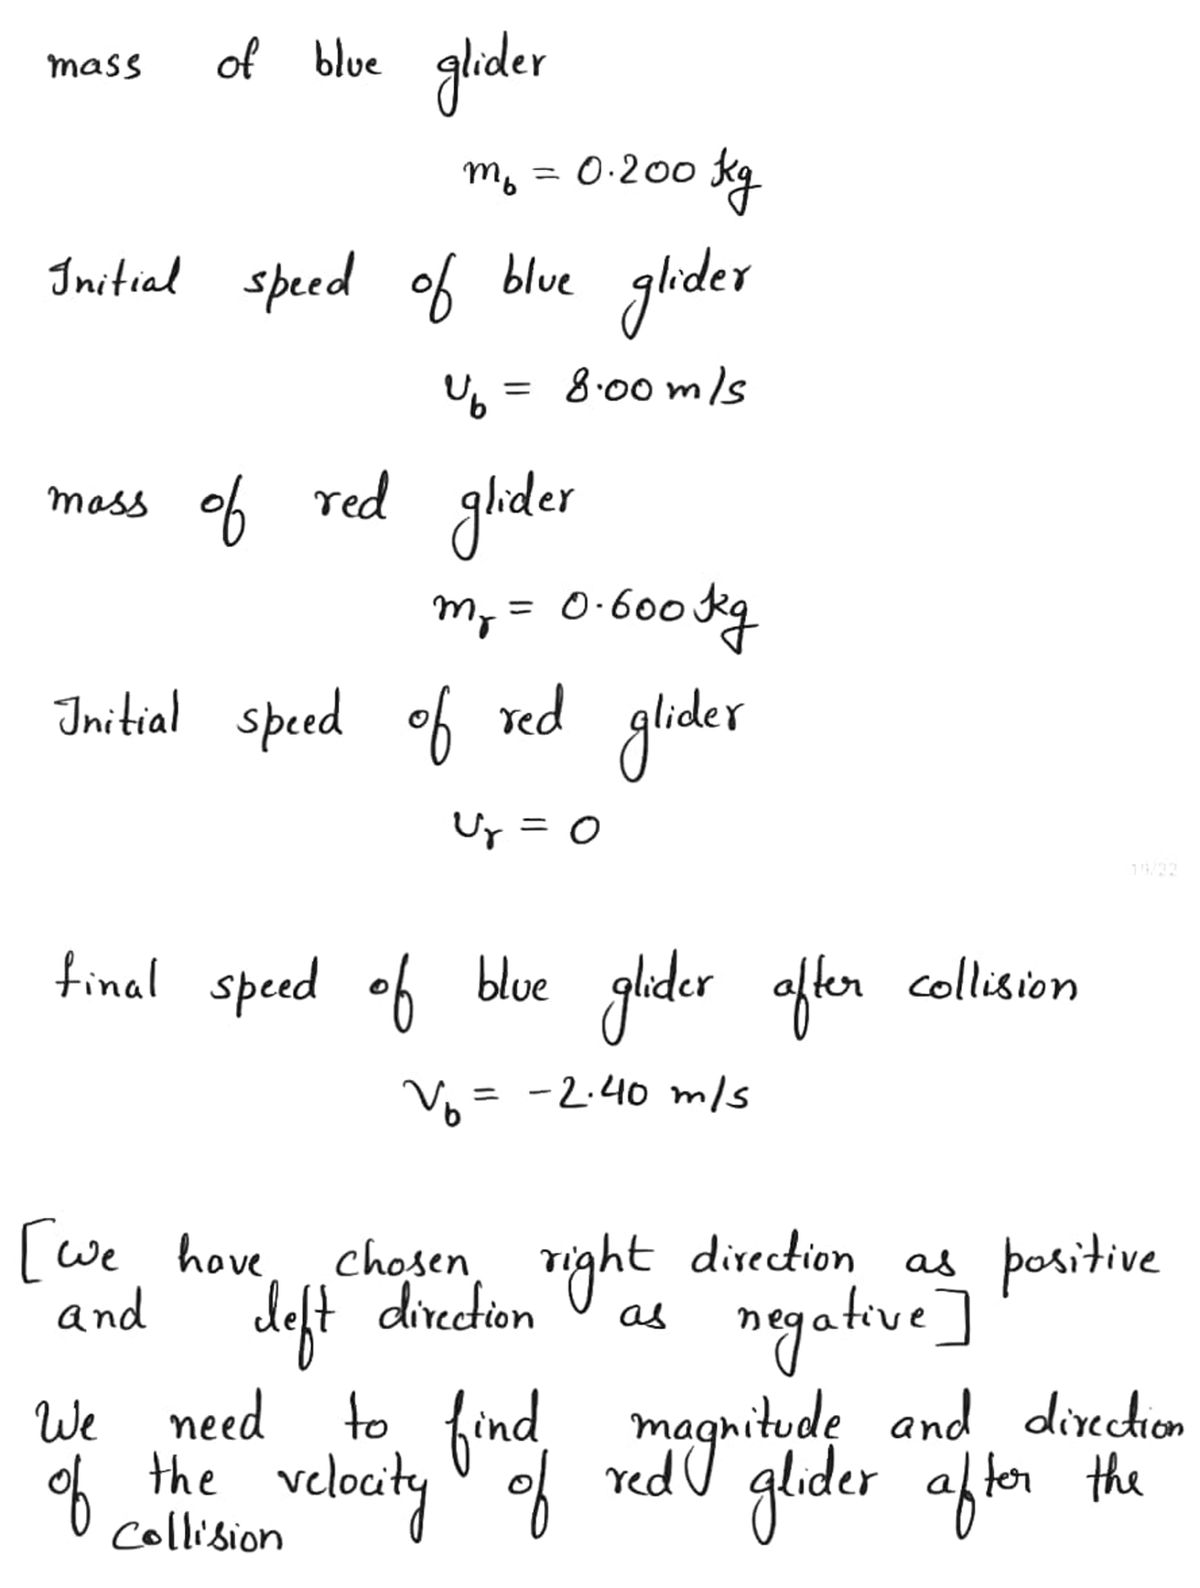 mass of blue glider
m_b = 0.200 kg
Initial speed of blue glider
u_b = 8.00 m/s
mass of red glider
m_r = 0.600 kg
Initial speed of red glider
u_r = 0
19/22
final speed of blue glider after collision
v_b = -2.40 m/s
[We have chosen right direction as positive
and left direction as negative]
We need to find magnitude and direction
of the velocity of red glider after the
collision